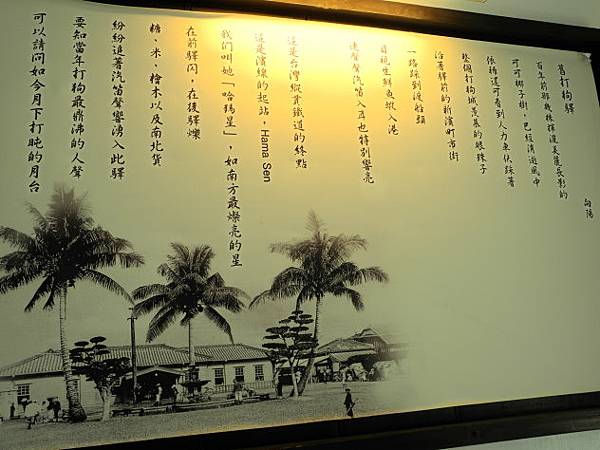 舊打狗驛
向陽
百年前那幾株揮灑美麗長影的
可可椰子樹，已經消逝風中
依稀還可看到人力車伕踩著
整個打狗城羨慕的眼珠子
沿著驛前的新濱町市街
一路踩到渡船頭
目視生鮮魚蝦入港
連聲聲汽笛入耳也特別響亮
這是台灣縱貫鐵道的終點
這是濱線的起站，Hama Sen
我們叫她「哈瑪星」，如南方最燦亮的星
在前驛閃，在後驛爍
糖、米、檜木以及南北貨
紛紛追著汽笛聲響湧入此驛
要知當年打狗最鼎沸的人聲
可以請問如今月下打盹的月台